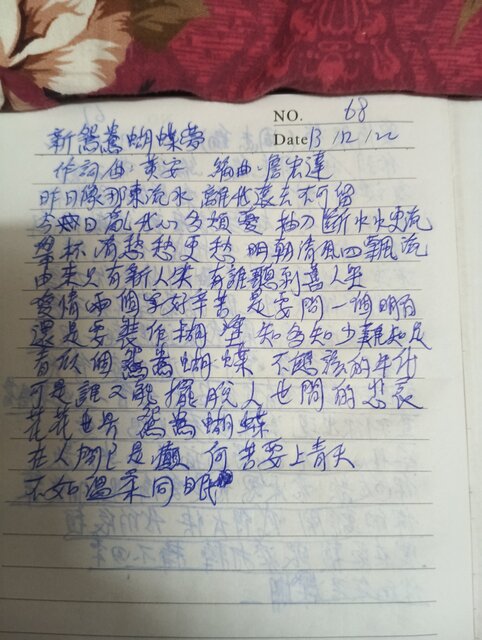 NO. 68
新鴛鴦蝴蝶夢
Date 13/12/22
作詞曲:黃安 編曲:詹宏達
昨日像那東流水 離我遠去不可留
今日亂我心多煩憂 抽刀斷水水更流
舉杯消愁愁更愁 明朝清風四飄流
由來只有新人笑 有誰聽到舊人哭
愛情兩個字好辛苦 是要問一個明白
還是要裝作糊塗 知多知少難知足
看似個鴛鴦蝴蝶 不應該的年代
可是誰又能擺脫人世間的悲哀
花花世界 鴛鴦蝴蝶
在人間已是癲 何苦要上青天
不如溫柔同眠